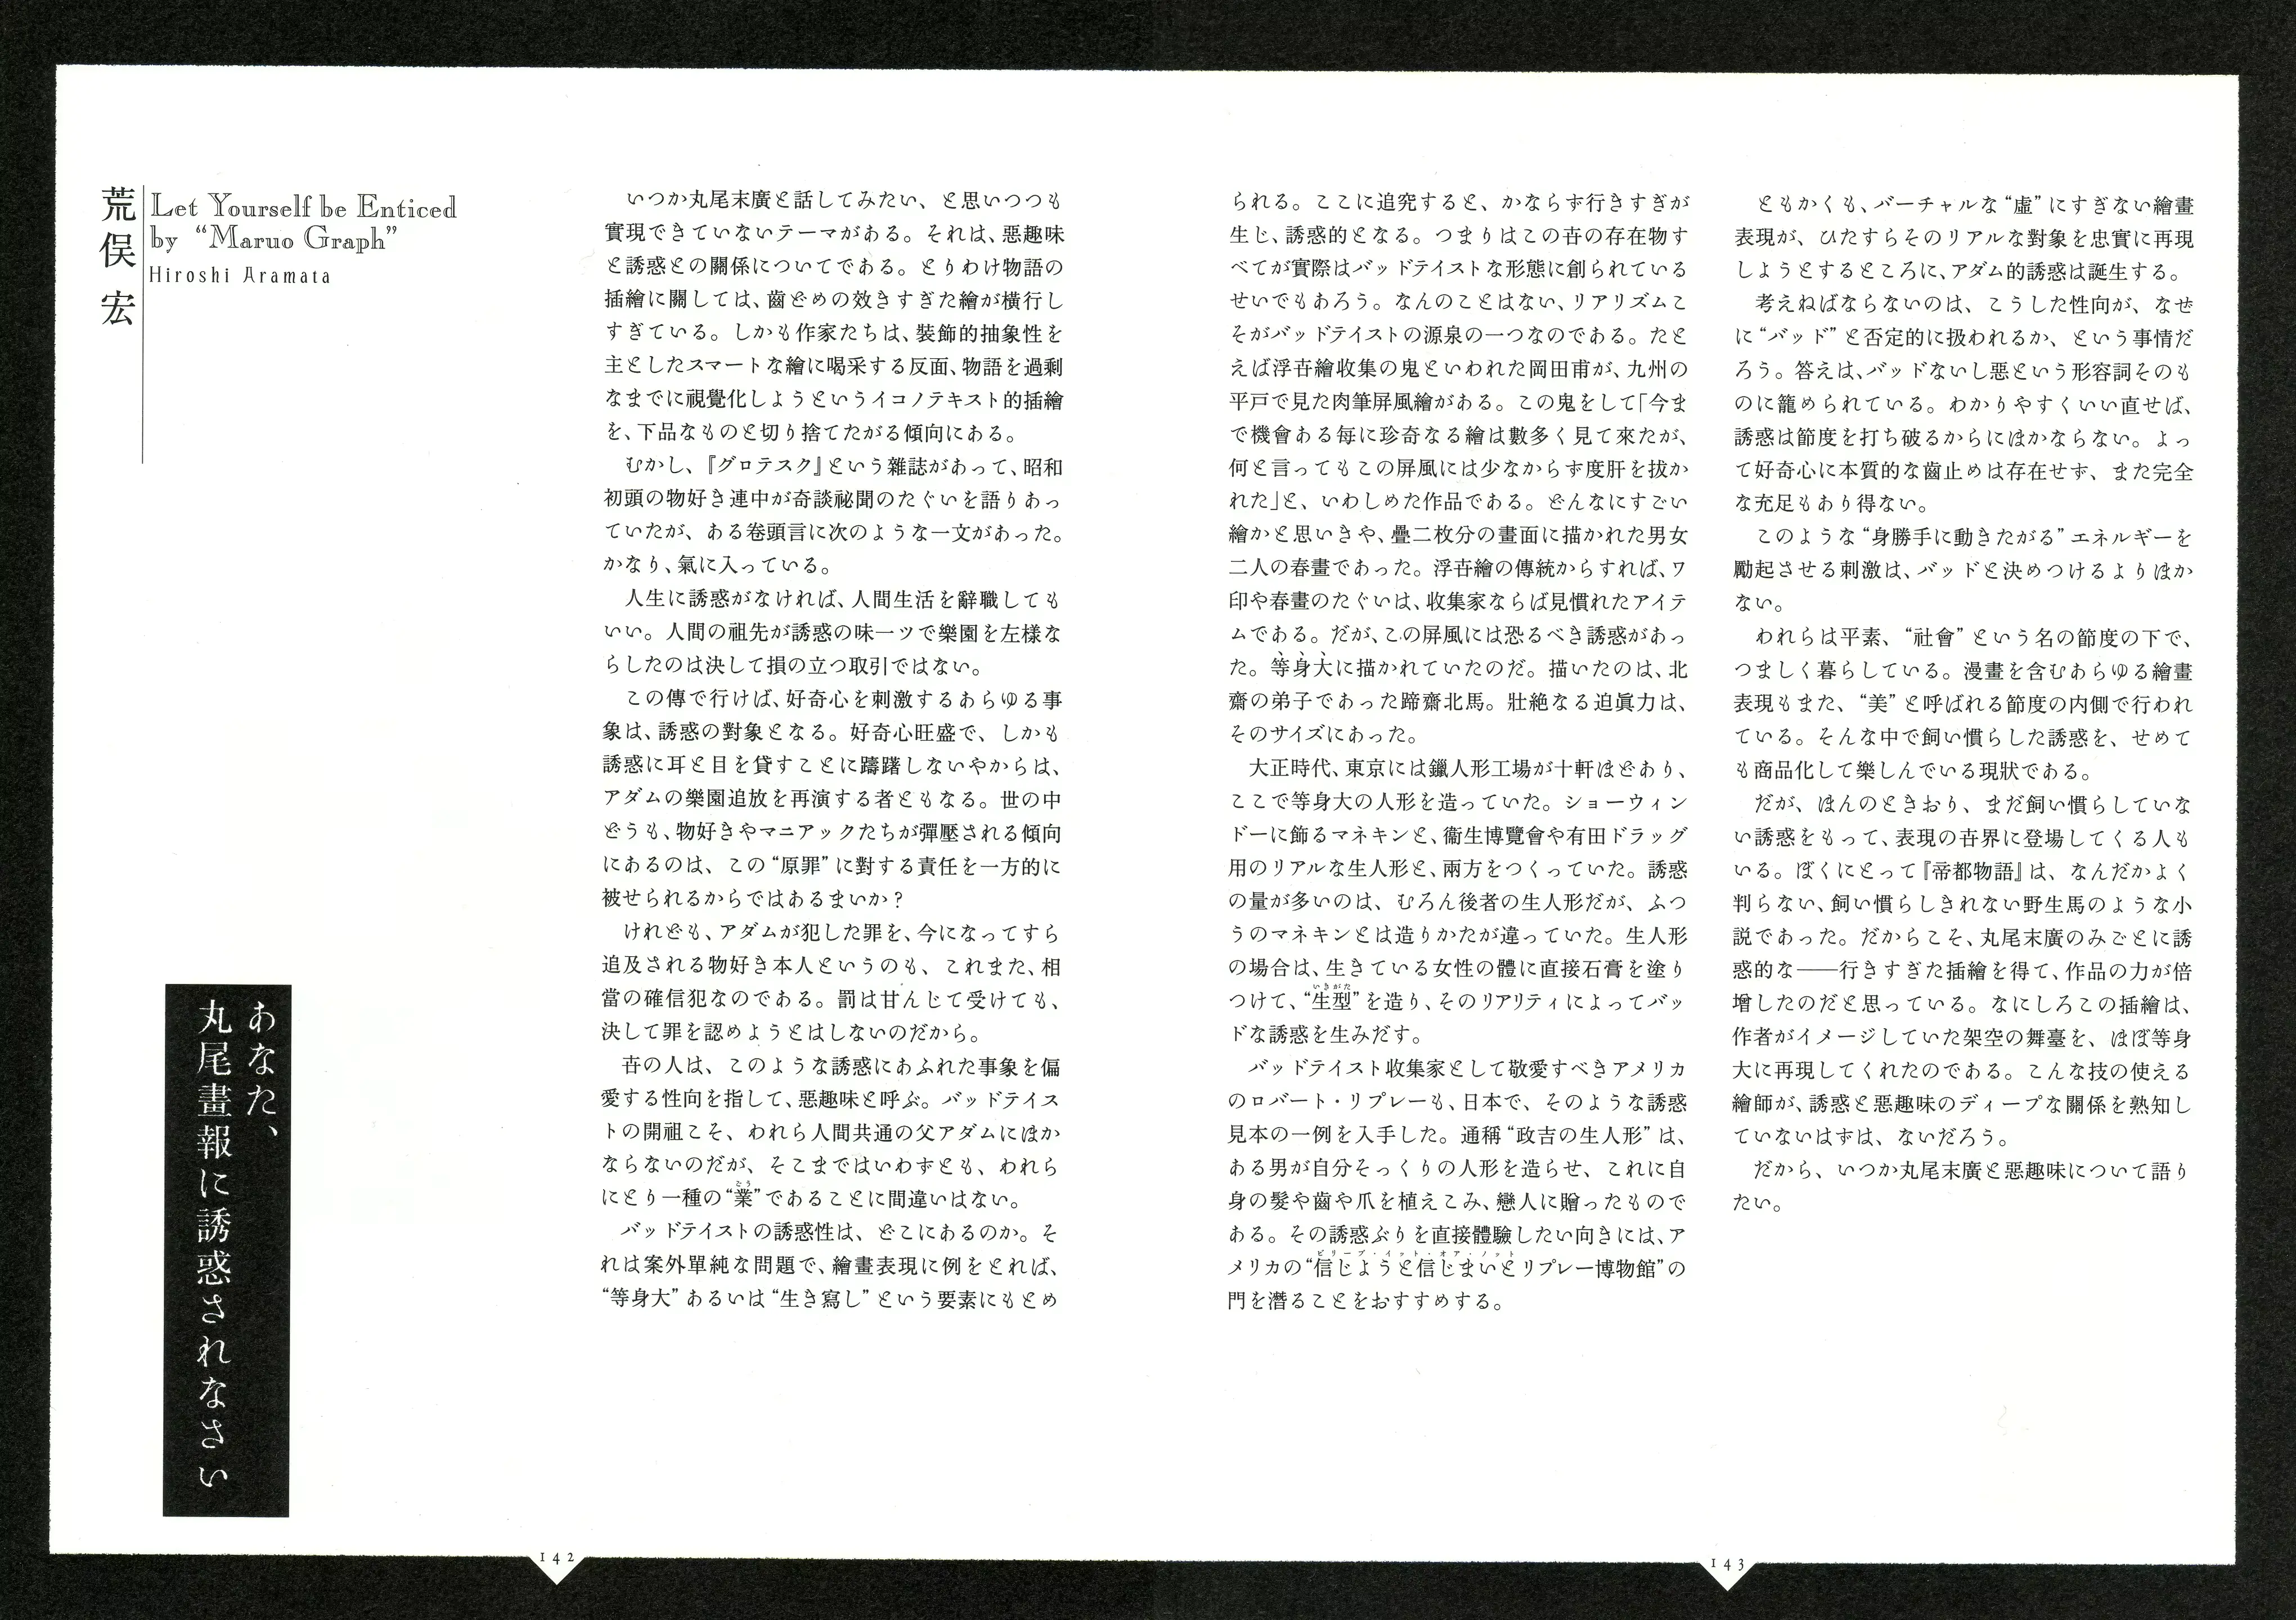 荒俣 宏
Let Yourself be Enticed
by “Maruo Graph”
Hiroshi Aramata
あなた、
丸尾畫報に誘惑されなさい
いつか丸尾末廣と話してみたい、と思いつつも
實現できていないテーマがある。それは、悪趣味
と誘惑との關係についてである。とりわけ物語の
插繪に關しては、齒どめの效きすぎた繪が横行し
すぎている。しかも作家たちは、裝飾的抽象性を
主としたスマートな繪に喝采する反面、物語を過剰
なまでに視覺化しようというイコノテキスト的插繪
を、下品なものと切り捨てたがる傾向にある。
むかし、『グロテスク』という雜誌があって、昭和
初頭の物好き連中が奇談祕聞のたぐいを語りあっ
ていたが、ある卷頭言に次のような一文があった。
かなり、氣に入っている。
人生に誘惑がなければ、人間生活を辭職しても
いい。人間の祖先が誘惑の味一ツで樂園を左様な
らしたのは決して損の立つ取引ではない。
この傳で行けば、好奇心を刺激するあらゆる事
象は、誘惑の對象となる。好奇心旺盛で、しかも
誘惑に耳と目を貸すことに躊躇しないやからは、
アダムの樂園追放を再演する者ともなる。世の中
どうも、物好きやマニアックたちが彈壓される傾向
にあるのは、この“原罪”に對する責任を一方的に
被せられるからではあるまいか？
けれども、アダムが犯した罪を、今になってすら
追及される物好き本人というのも、これまた、相
當の確信犯なのである。罰は甘んじて受けても、
決して罪を認めようとはしないのだから。
卋の人は、このような誘惑にあふれた事象を偏
愛する性向を指して、悪趣味と呼ぶ。バッドテイス
トの開祖こそ、われら人間共通の父アダムにほか
ならないのだが、そこまではいわずとも、われら
にとり一種の“業”であることに間違いはない。
バッドテイストの誘惑性は、どこにあるのか。そ
れは案外單純な問題で、繪畫表現に例をとれば、
“等身大”あるいは“生き寫し”という要素にもとめ
られる。ここに追究すると、かならず行きすぎが
生じ、誘惑的となる。つまりはこの卋の存在物す
べてが實際はバッドテイストな形態に創られている
せいでもあろう。なんのことはない、リアリズムこ
そがバッドテイストの源泉の一つなのである。たと
えば浮卋繪收集の鬼といわれた岡田甫が、九州の
平戸で見た肉筆屏風繪がある。この鬼をして「今ま
で機會ある毎に珍奇なる繪は數多く見て來たが、
何と言ってもこの屏風には少なからず度肝を拔か
れた」と、いわしめた作品である。どんなにすごい
繪かと思いきや、疊二枚分の畫面に描かれた男女
二人の春畫であった。浮卋繪の傳統からすれば、ワ
印や春畫のたぐいは、收集家ならば見慣れたアイテ
ムである。だが、この屏風には恐るべき誘惑があっ
た。等身大に描かれていたのだ。描いたのは、北
齋の弟子であった蹄齋北馬。壯絶なる迫眞力は、
そのサイズにあった。
大正時代、東京には鑞人形工場が十軒ほどあり、
ここで等身大の人形を造っていた。ショーウィン
ドーに飾るマネキンと、衞生博覽會や有田ドラッグ
用のリアルな生人形と、兩方をつくっていた。誘惑
の量が多いのは、むろん後者の生人形だが、ふつ
うのマネキンとは造りかたが違っていた。生人形
の場合は、生きている女性の體に直接石膏を塗り
いきがた
つけて、“生型”を造り、そのリアリティによってバッ
ドな誘惑を生みだす。
バッドテイスト收集家として敬愛すべきアメリカ
のロバート・リプレーも、日本で、そのような誘惑
見本の一例を入手した。通稱“政吉の生人形”は、
ある男が自分そっくりの人形を造らせ、これに自
身の髮や齒や爪を植えこみ、戀人に贈ったもので
ある。その誘惑ぶりを直接體驗したい向きには、ア
ビリーブ・イット・オア・ノット
メリカの“信じようと信じまいとリプレー博物館”の
門を潛ることをおすすめする。
ともかくも、バーチャルな“虛”にすぎない繪畫
表現が、ひたすらそのリアルな對象を忠實に再現
しようとするところに、アダム的誘惑は誕生する。
考えねばならないのは、こうした性向が、なぜ
に“バッド”と否定的に扱われるか、という事情だ
ろう。答えは、バッドないし悪という形容詞そのも
のに籠められている。わかりやすくいい直せば、
誘惑は節度を打ち破るからにほかならない。よっ
て好奇心に本質的な齒止めは存在せず、また完全
な充足もあり得ない。
このような“身勝手に動きたがる”エネルギーを
勵起させる刺激は、バッドと決めつけるよりほか
ない。
われらは平素、“社會”という名の節度の下で、
つましく暮らしている。漫畫を含むあらゆる繪畫
表現もまた、“美”と呼ばれる節度の内側で行われ
ている。そんな中で飼い慣らした誘惑を、せめて
も商品化して樂しんでいる現狀である。
だが、ほんのときおり、まだ飼い慣らしていな
い誘惑をもって、表現の卋界に登場してくる人も
いる。ぼくにとって『帝都物語』は、なんだかよく
判らない、飼い慣らしきれない野生馬のような小
説であった。だからこそ、丸尾末廣のみごとに誘
惑的な――行きすぎた插繪を得て、作品の力が倍
增したのだと思っている。なにしろこの插繪は、
作者がイメージしていた架空の舞臺を、ほぼ等身
大に再現してくれたのである。こんな技の使える
繪師が、誘惑と悪趣味のディープな關係を熟知し
ていないはずは、ないだろう。
だから、いつか丸尾末廣と悪趣味について語り
たい。
142
143